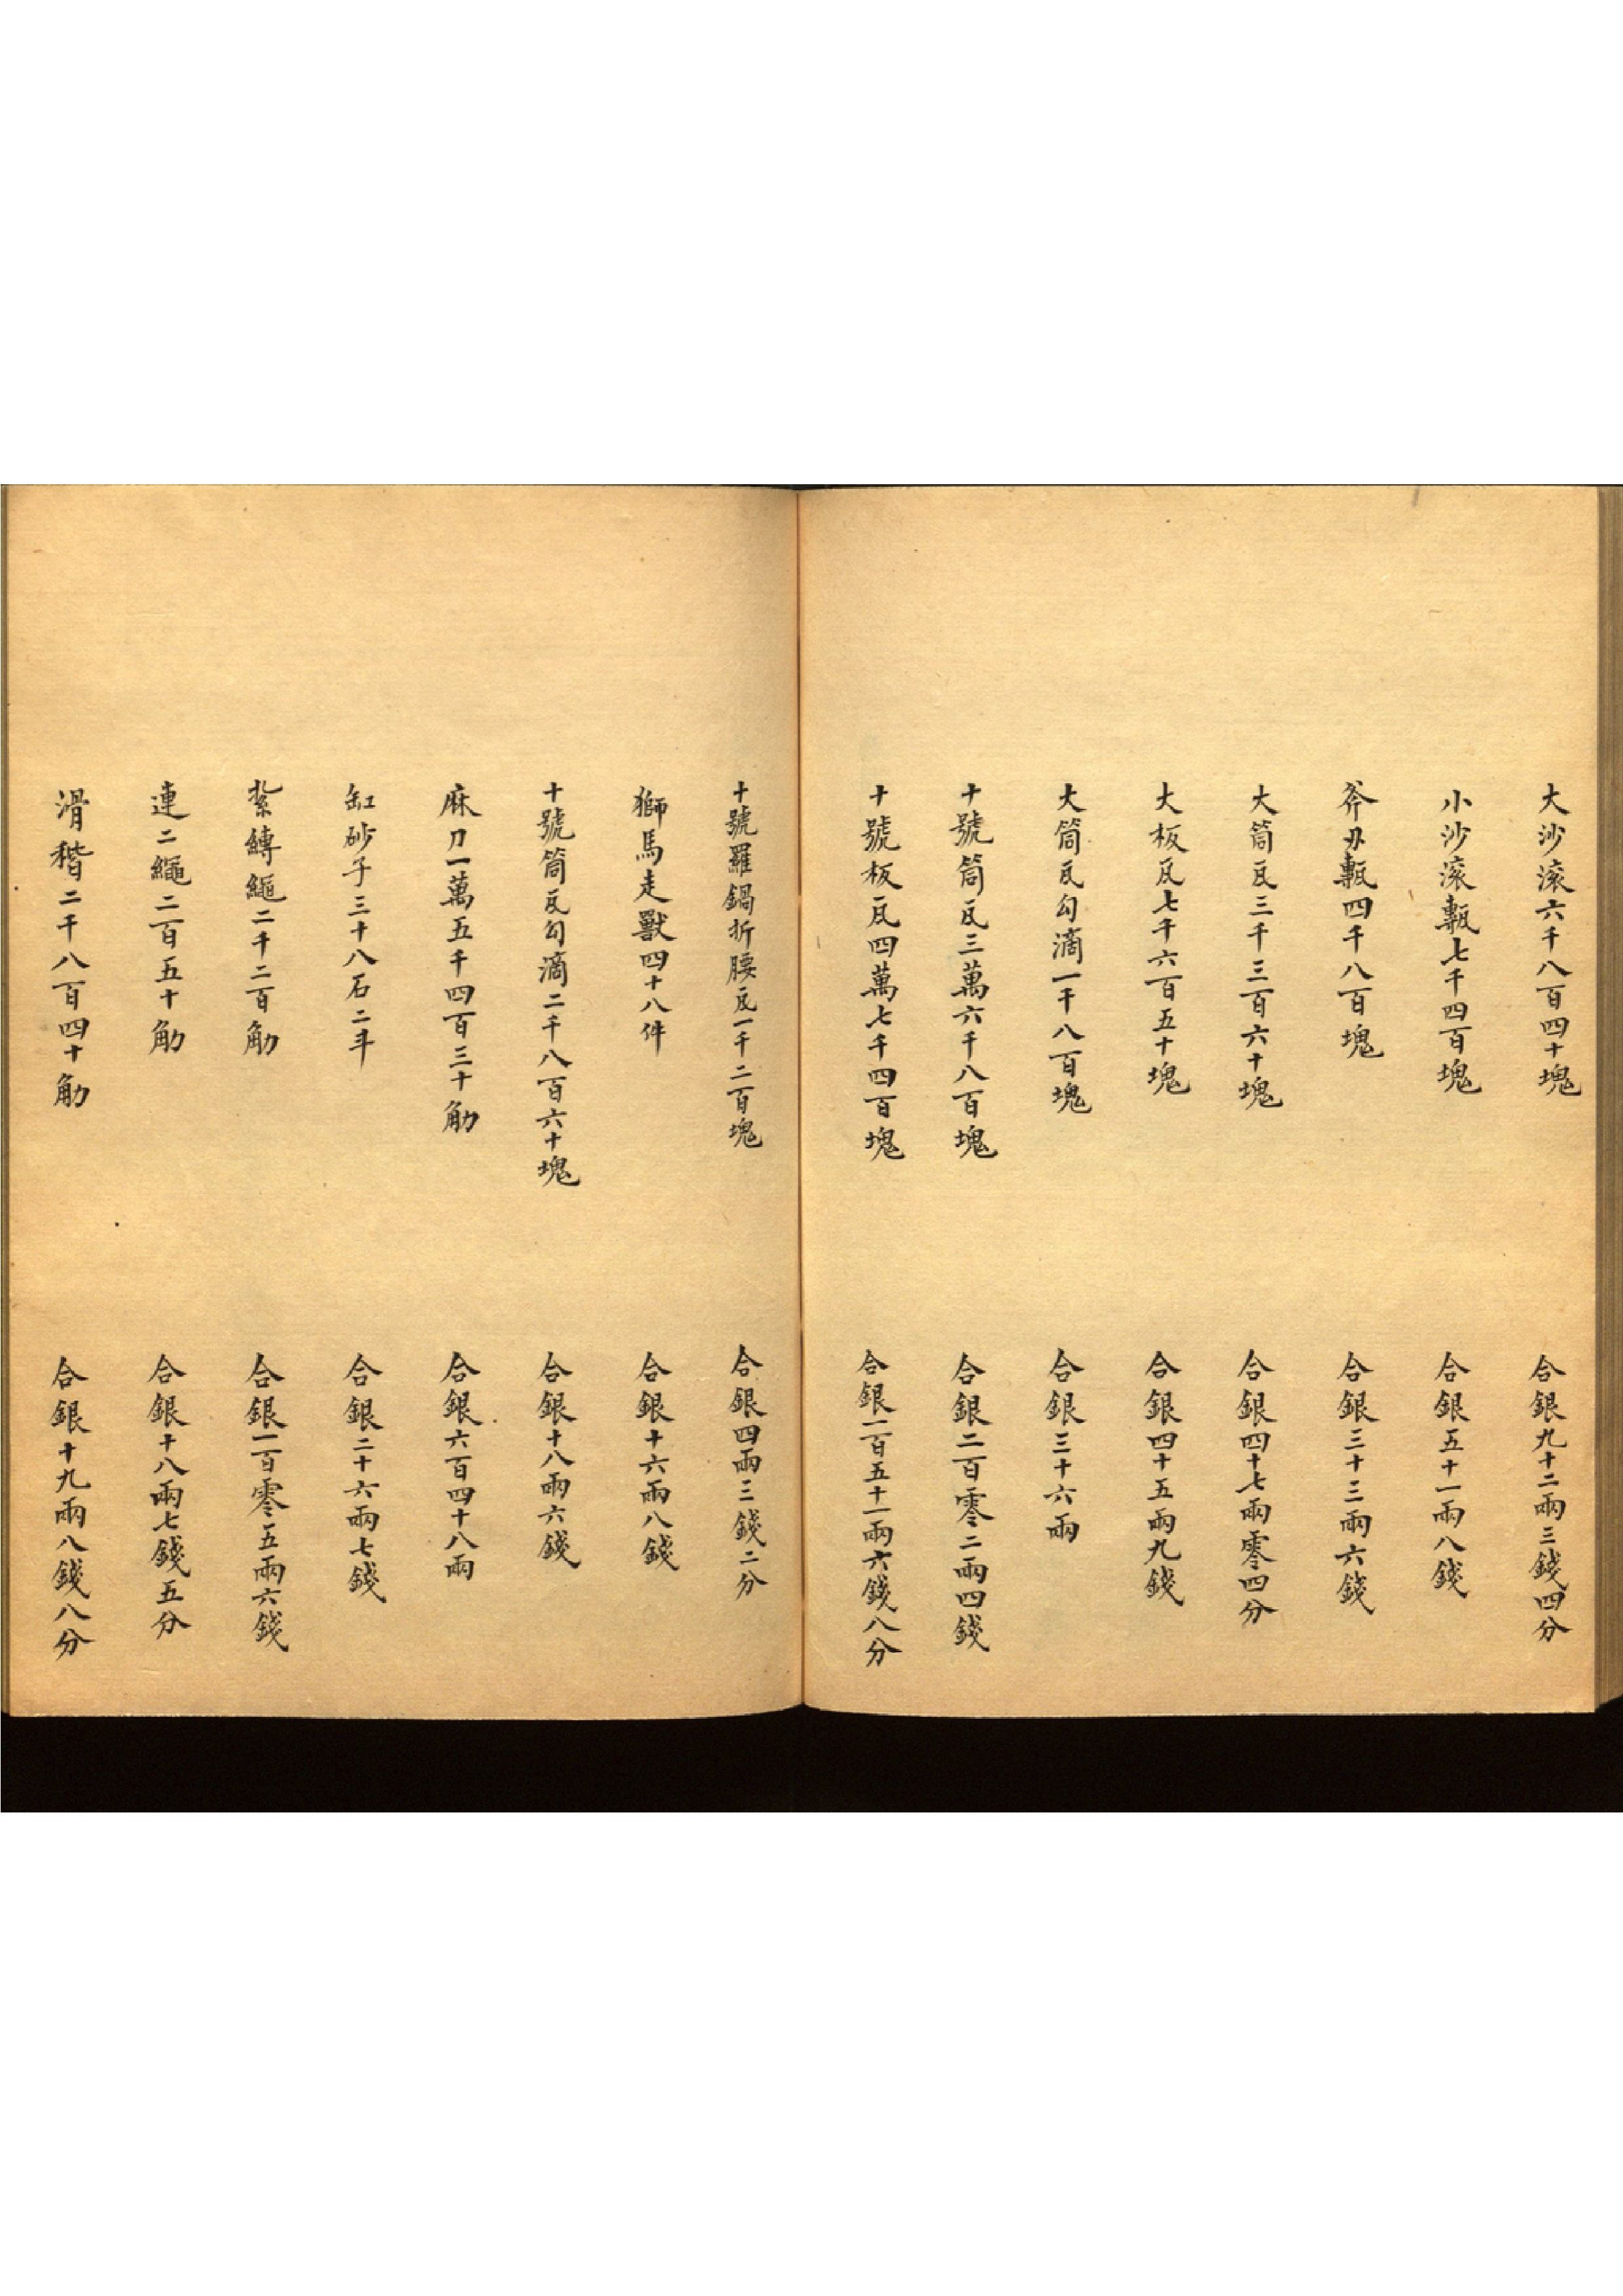 大沙滚六千八百四十塊 合銀九十二兩三錢四分
小沙滚甎七千四百塊 合銀五十一兩八錢
斧刃甎四千八百塊 合銀三十三兩六錢
大筒瓦三千三百六十塊 合銀四十七兩零四分
大板瓦七千六百五十塊 合銀四十五兩九錢
大筒瓦勾滴一千八百塊 合銀三十六兩
十號筒瓦三萬六千八百塊 合銀二百零二兩四錢
十號板瓦四萬七千四百塊 合銀一百五十一兩六錢八分
十號羅鍋折腰瓦一千二百塊 合銀四兩三錢二分
獅馬走獸四十八件 合銀十六兩八錢
十號筒瓦勾滴二千八百六十塊 合銀十八兩六錢
麻刀一萬五千四百三十觔 合銀六百四十八兩
缸砂子三十八石二斗 合銀二十六兩七錢
紮縛繩二千二百觔 合銀一百零五兩六錢
連二繩二百五十觔 合銀十八兩七錢五分
滑稭二千八百四十觔 合銀十九兩八錢八分